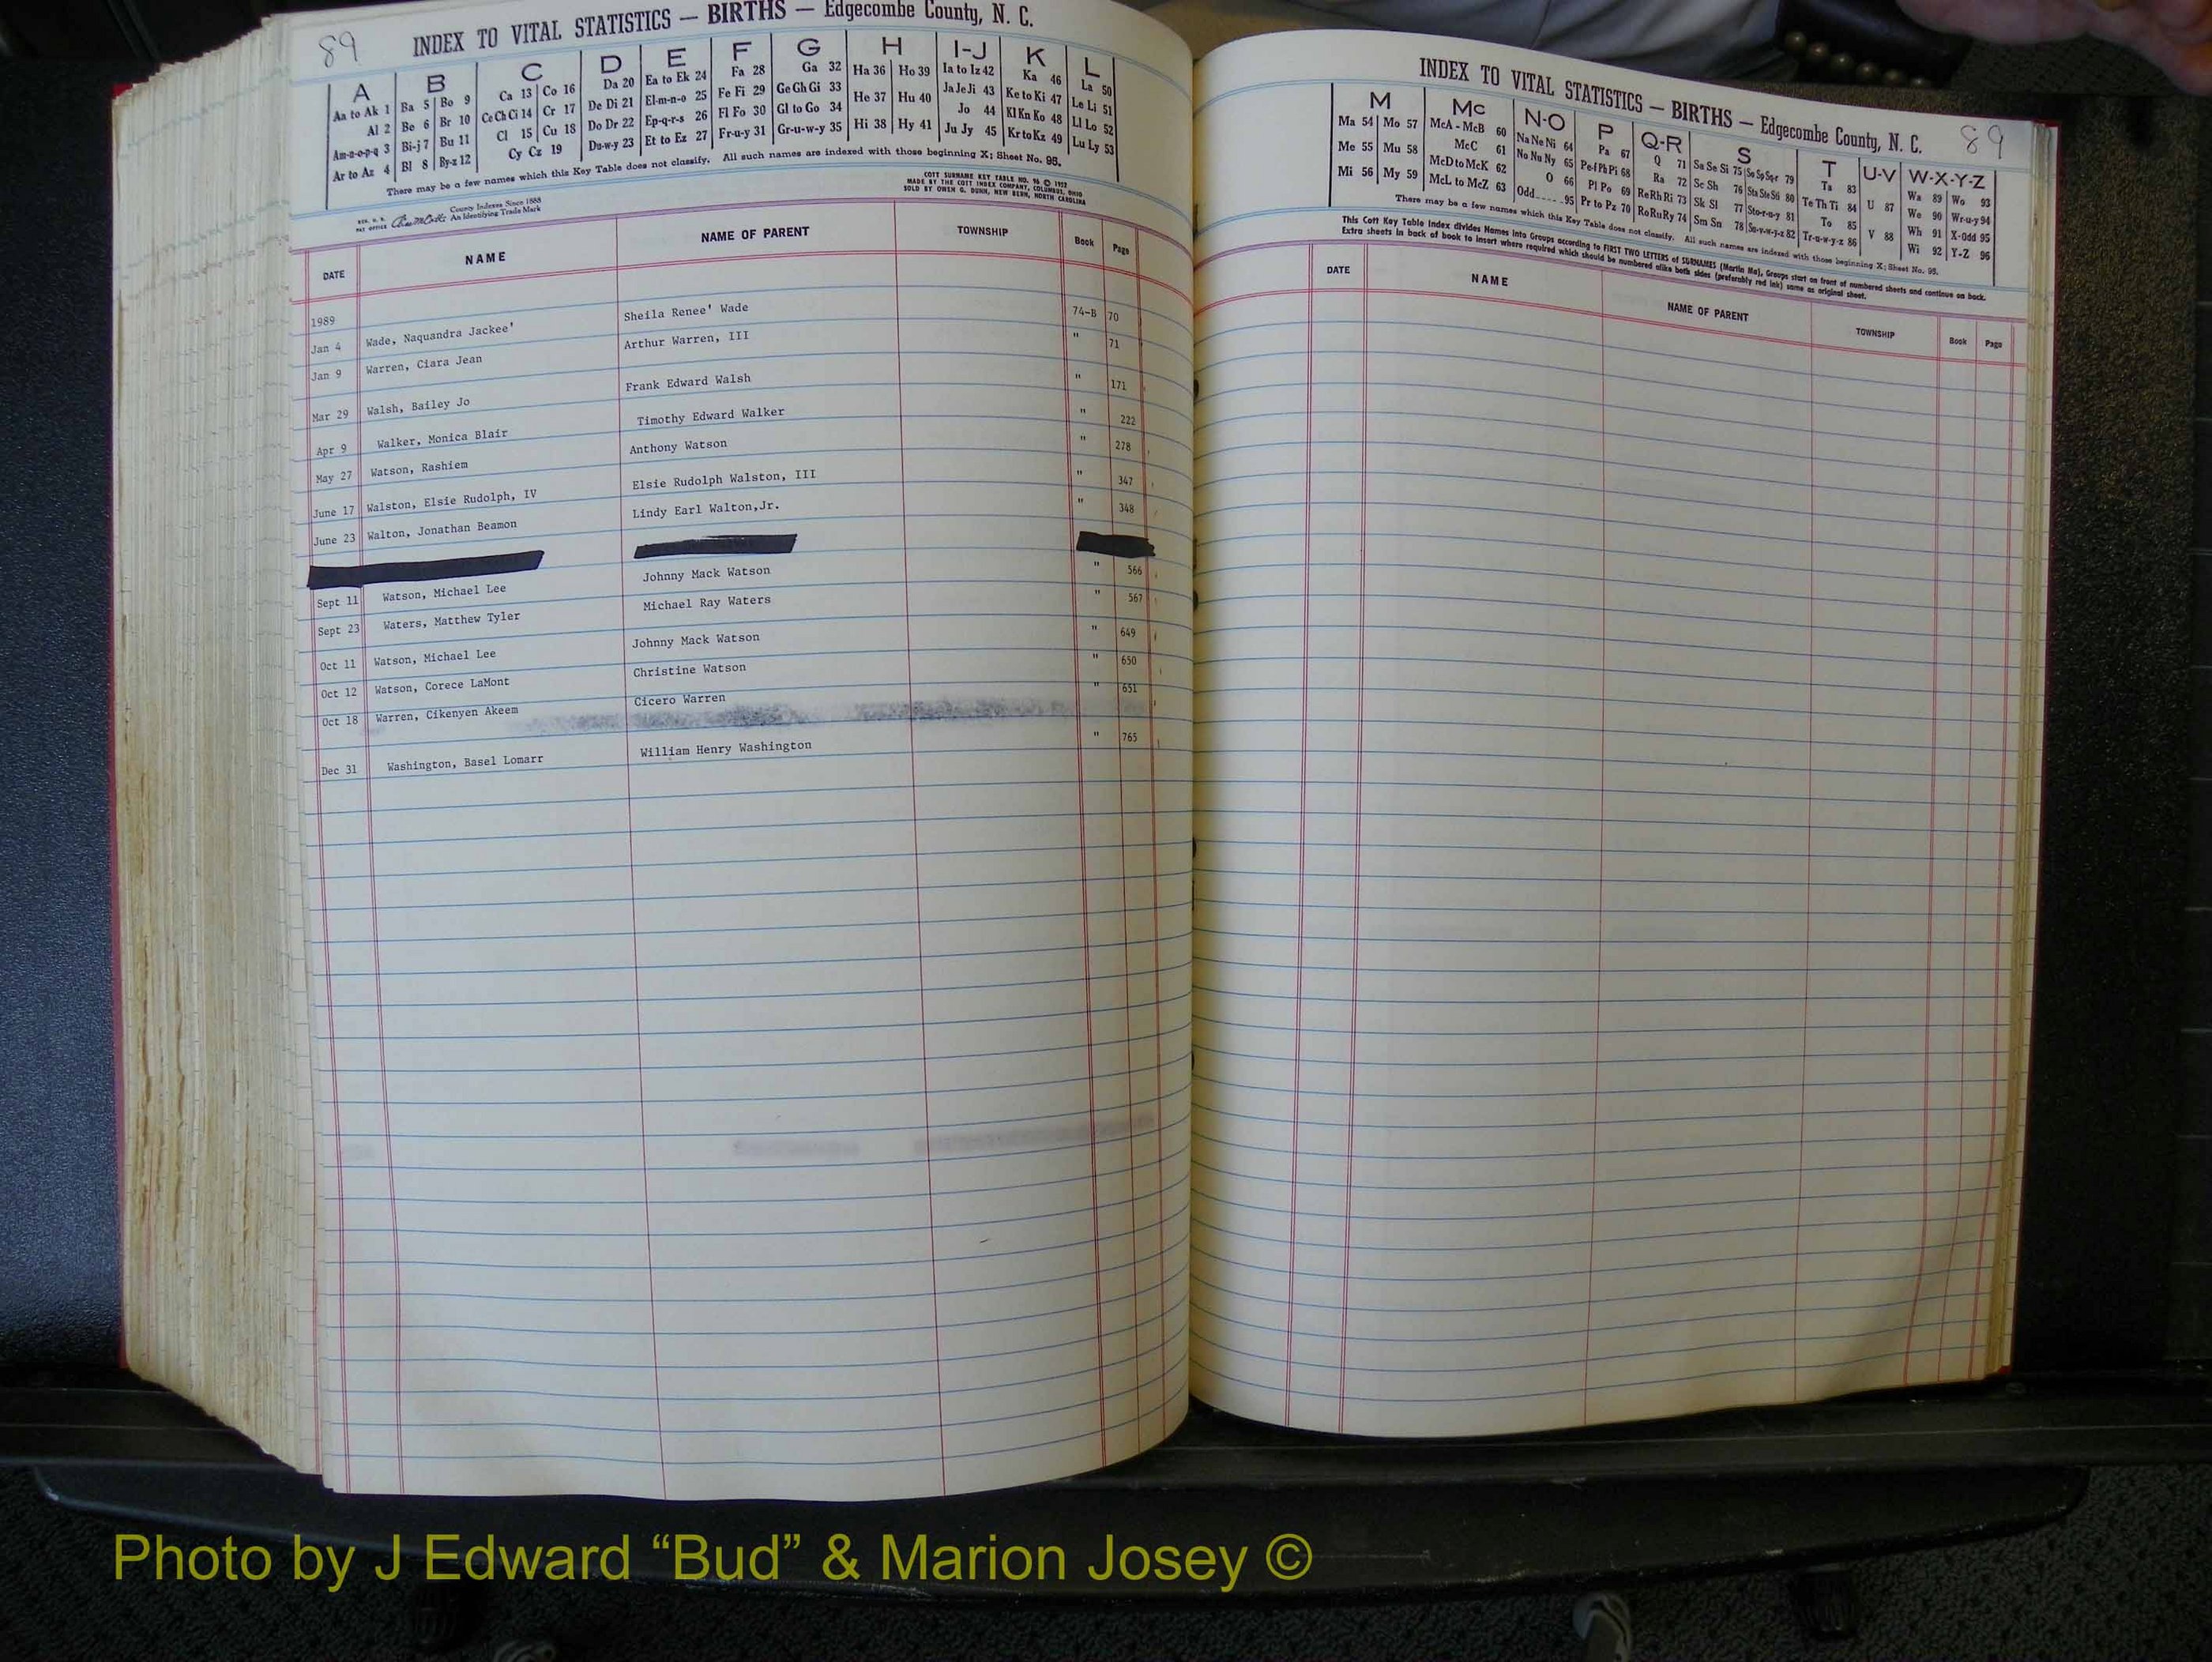 89
INDEX TO VITAL STATISTICS — BIRTHS — Edgecombe County, N. C.
A B C D E F G H I-J K L
Aa to Ak 1 Ba 5 Bo 9 Ca 13 Co 16 Da 20 Ea to Ek 24 Fa 28 Ga 32 Ha 36 Ho 39 Ia to Iz 42 Ka 46 La 50
Al 2 Be 6 Br 10 Ce Ch Ci 14 Cr 17 De Di 21 El-m-n-o 25 Fe Fi 29 Ge Gh Gi 33 He 37 Hu 40 Ja Je Ji 43 Ke to Ki 47 Le Li 51
Am-n-o-p-q 3 Bi-j 7 Bu 11 Cl 15 Cu 18 Do Dr 22 Ep-q-r-s 26 Fl Fo 30 Gl to Go 34 Hi 38 Hy 41 Jo 44 Kl Kn Ko 48 Ll Lo 52
Ar to Az 4 Bl 8 By-z 12 Cy Cz 19 Du-w-y 23 Et to Ez 27 Fr-u-y 31 Gr-u-w-y 35 Ju Jy 45 Kr to Kz 49 Lu Ly 53
There may be a few names which this Key Table does not classify. All such names are indexed with those beginning X; Sheet No. 95.
County Indexes Since 1888
An Identifying Trade Mark
COTT SURNAME KEY TABLE NO. 96 © 1952
MADE BY THE COTT INDEX COMPANY, COLUMBUS, OHIO
SOLD BY OWEN G. DUNN, NEW BERN, NORTH CAROLINA
DATE NAME NAME OF PARENT TOWNSHIP Book Page
1989
Jan 4 Wade, Naquandra Jackee' Sheila Renee' Wade 74-B 70
Jan 9 Warren, Ciara Jean Arthur Warren, III " 71
Mar 29 Walsh, Bailey Jo Frank Edward Walsh " 171
Apr 9 Walker, Monica Blair Timothy Edward Walker " 222
May 27 Watson, Rashiem Anthony Watson " 278
June 17 Walston, Elsie Rudolph, IV Elsie Rudolph Walston, III " 347
June 23 Walton, Jonathan Beamon Lindy Earl Walton,Jr. " 348
Sept 11 Watson, Michael Lee Johnny Mack Watson " 566
Sept 23 Waters, Matthew Tyler Michael Ray Waters " 567
Oct 11 Watson, Michael Lee Johnny Mack Watson " 649
Oct 12 Watson, Corece LaMont Christine Watson " 650
Oct 18 Warren, Cikenyen Akeem Cicero Warren " 651
Dec 31 Washington, Basel Lomarr William Henry Washington " 765
INDEX TO VITAL STATISTICS — BIRTHS — Edgecombe County, N. C. 89
M Mc N-O P Q-R S T U-V W-X-Y-Z
Ma 54 Mo 57 McA - McB 60 Na Ne Ni 64 Pa 67 Q 71 Sa Se Si 75 So Sp Sq-r 79 Ta 83 U 87 Wa 89 Wo 93
Me 55 Mu 58 McC 61 No Nu Ny 65 Pe-f Ph Pi 68 Ra 72 Sc Sh 76 Sta Ste Sti 80 Te Th Ti 84 V 88 We 90 Wr-u-y 94
Mi 56 My 59 McD to McK 62 O 66 Pl Po 69 Re Rh Ri 73 Sk Sl 77 Sto-r-u-y 81 To 85 Wh 91 X-Odd 95
McL to McZ 63 Odd.....95 Pr to Pz 70 Ro Ru Ry 74 Sm Sn 78 Su-v-w-y-z 82 Tr-u-w-y-z 86 Wi 92 Y-Z 96
There may be a few names which this Key Table does not classify. All such names are indexed with those beginning X; Sheet No. 95.
This Cott Key Table Index divides Names into Groups according to FIRST TWO LETTERS of SURNAMES (Martin Ma). Groups start on front of numbered sheets and continue on back.
Extra sheets in back of book to insert where required which should be numbered alike both sides (preferably red ink) same as original sheet.
DATE NAME NAME OF PARENT TOWNSHIP Book Page
Photo by J Edward “Bud” & Marion Josey ©